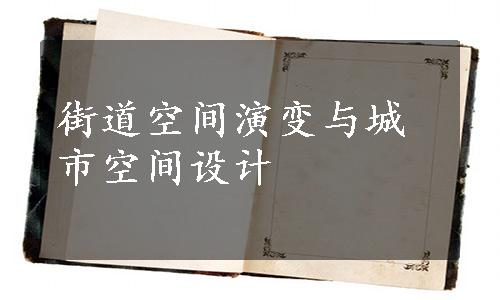 街道空间演变与城
市空间设计